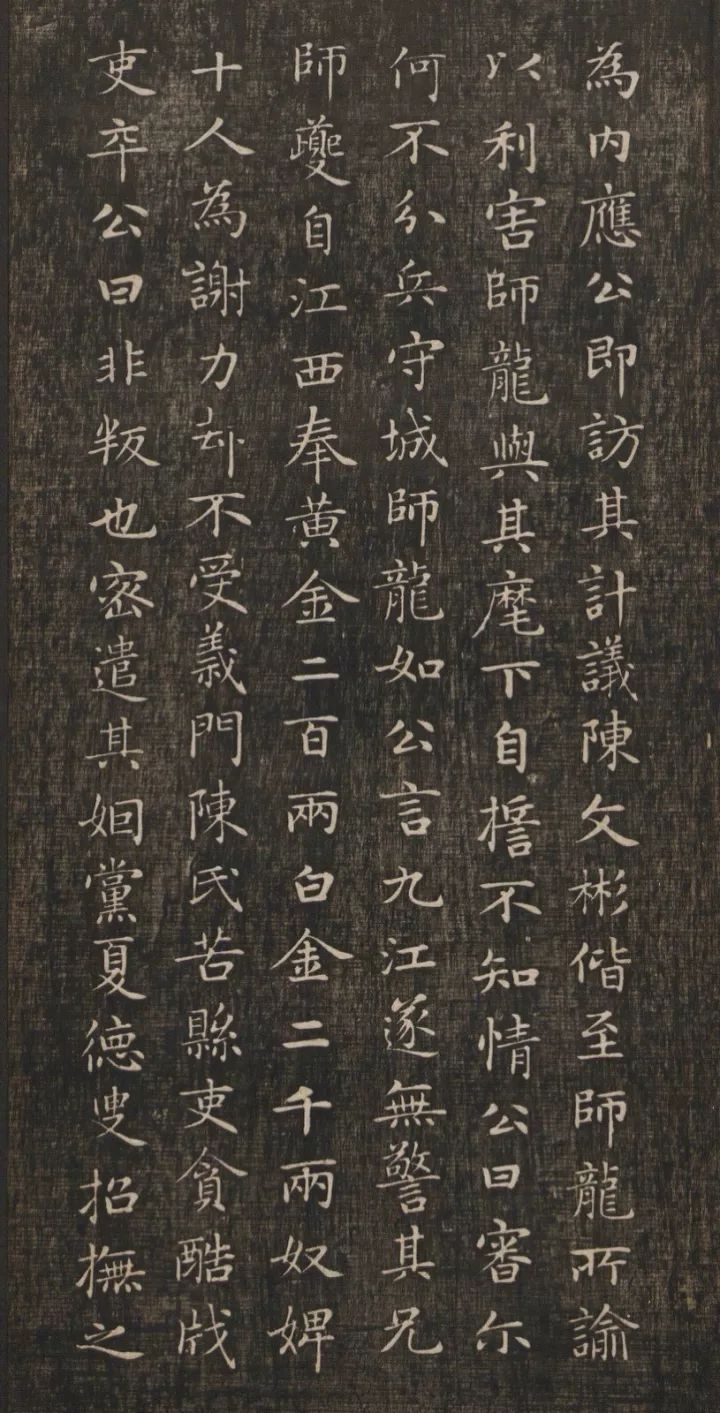 為內應公即訪其計議陳文彬偕至師龍所諭
以利害師龍與其麾下自擔不知情公曰審尒
何不分兵守城師龍如公言九江遂無警其兄
師夔自江西奉黃金二百兩白金二千兩奴婢
十人為謝力却不受義門陳氏苦縣吏貪酷戕
吏卒公曰非叛也密遣其姻黨夏德叟招撫之